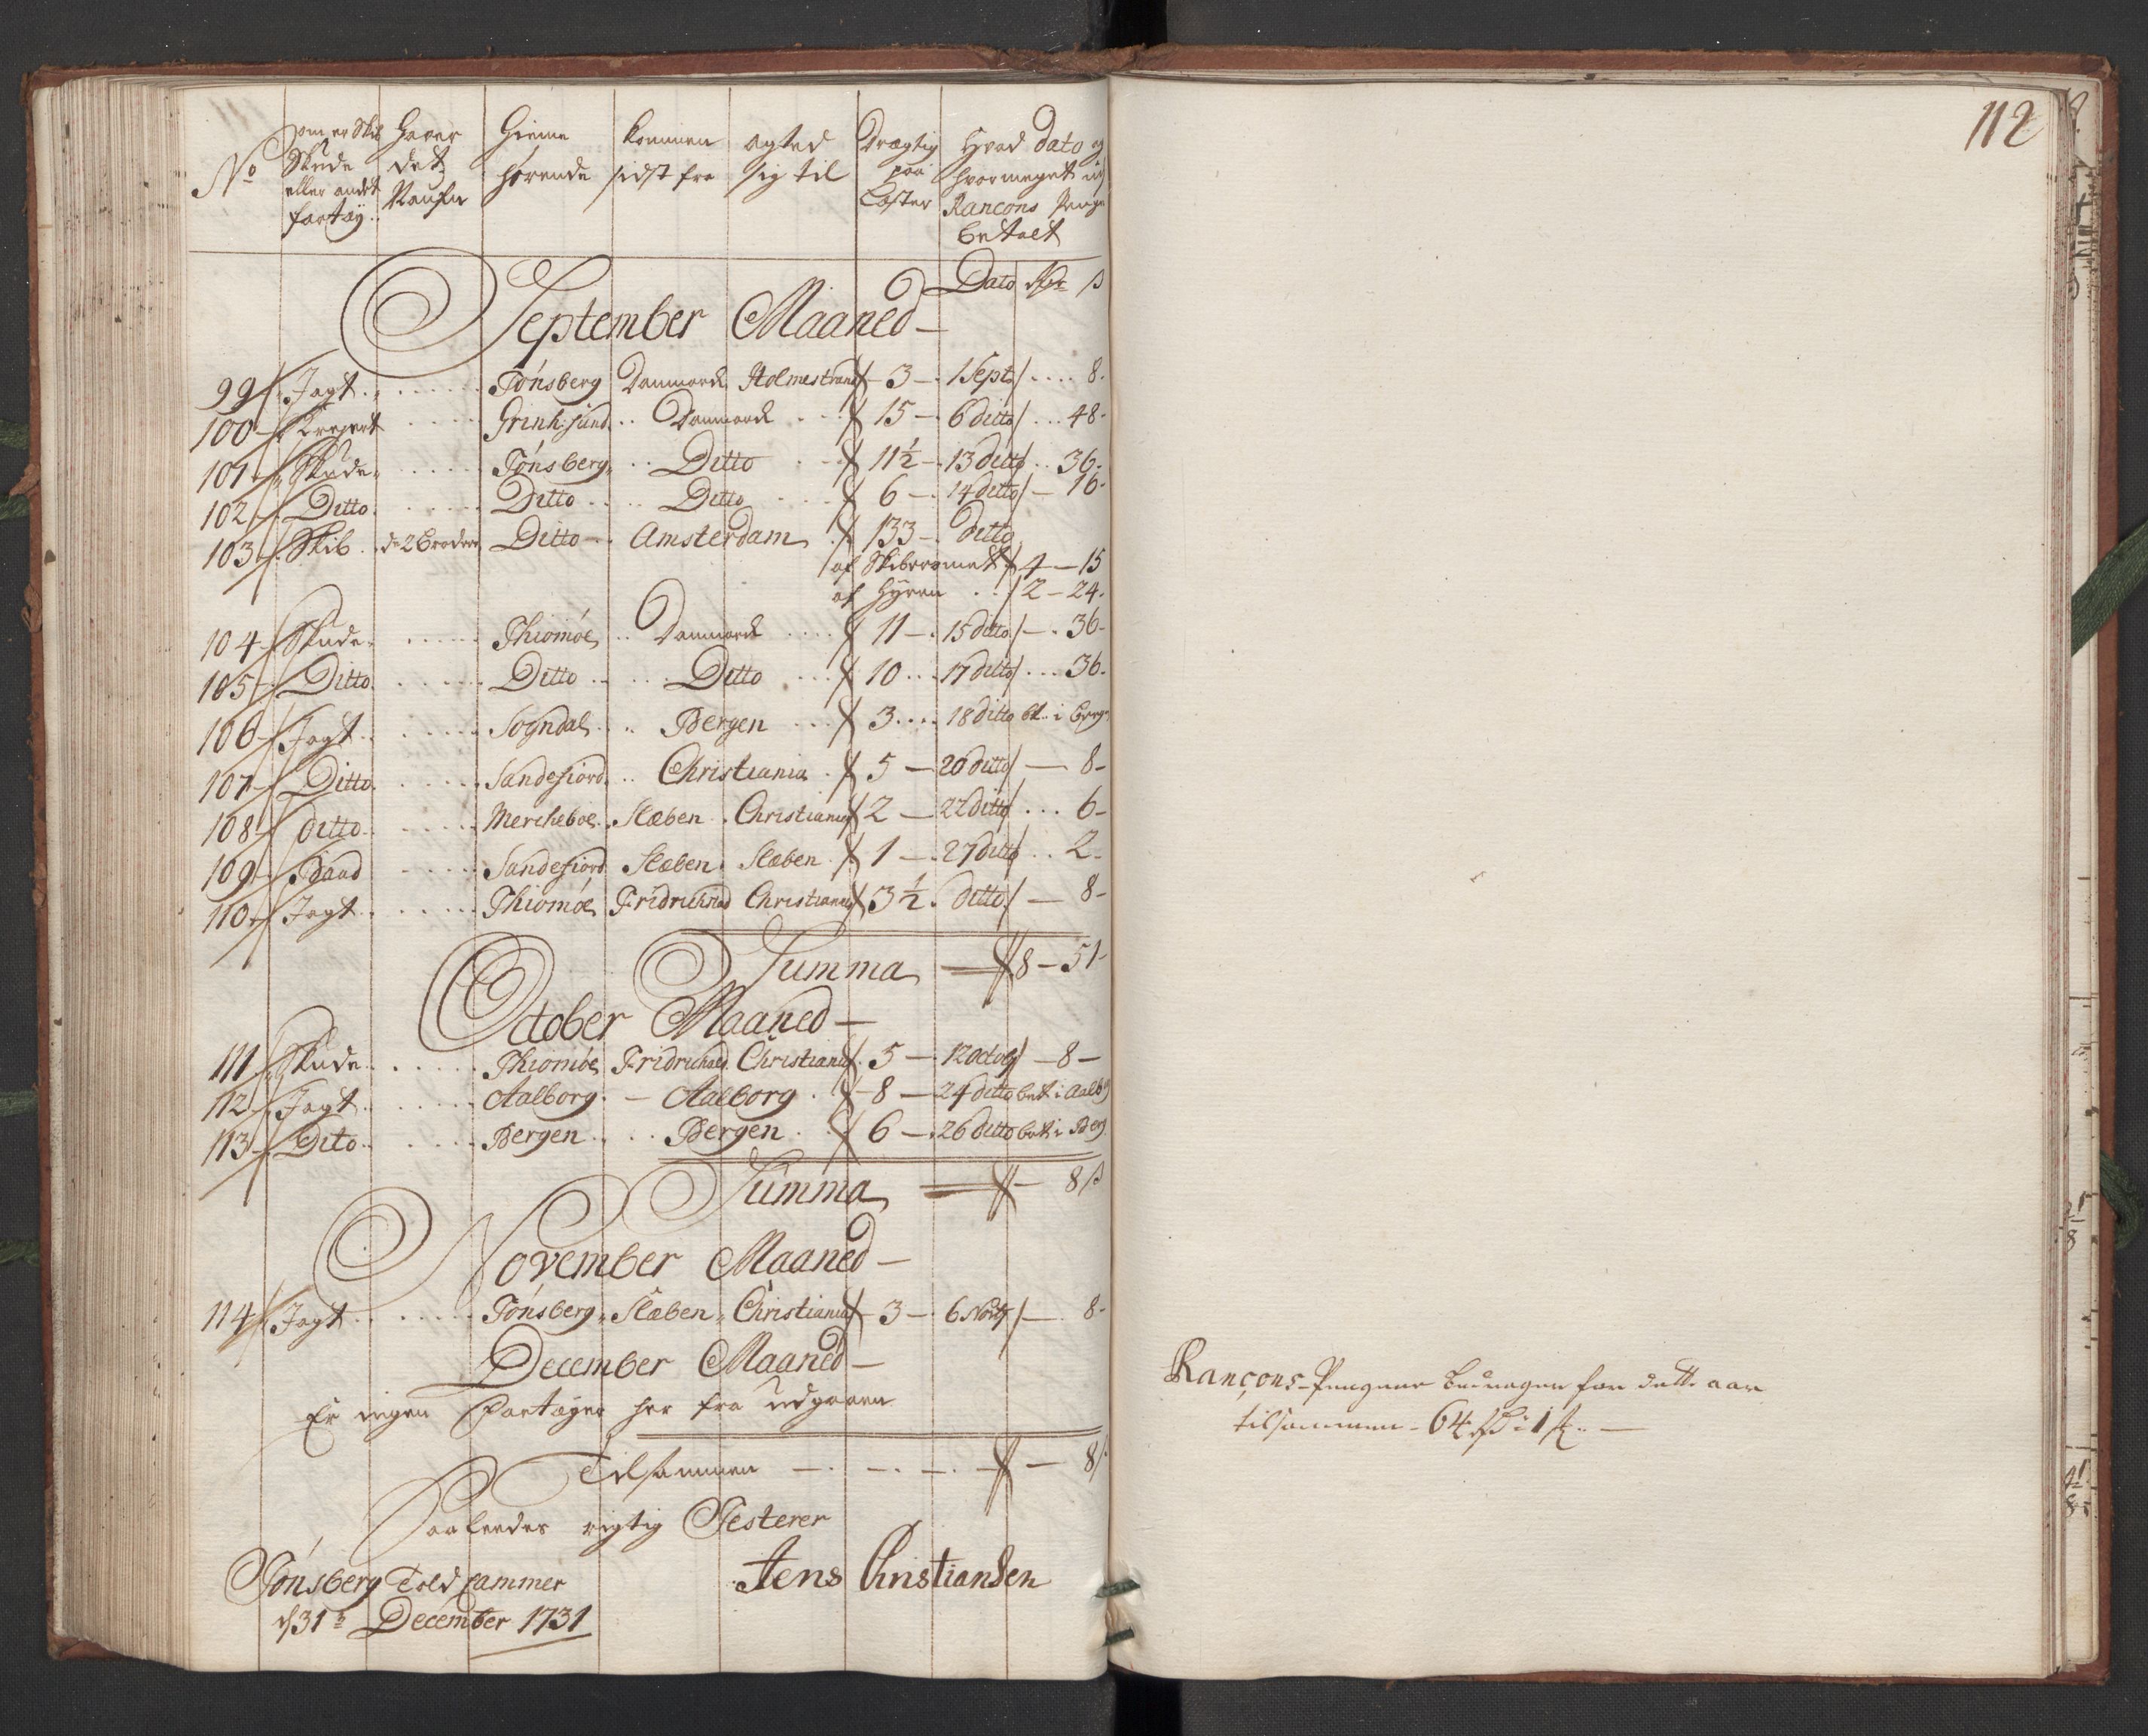 No | om er Skib Skude eller andet fartøy | Haver det Naufn | Hieme hørende | kommen sidst fra | agted sig til | Drægtig paa Læster | Hvad dato og hvormeget udj Rancons Penge betalt
Dato | Rdr | ß
September Maaned
99 Jagt Tønsberg Danmarck Holmestrand 3 1 Sept 8
100 Krejert Grinh: sund Danmarck 15 6 ditto 48
101 Skude Tønsberg Ditto 11½ 13 ditto 36
102 Ditto Ditto Ditto 6 14 ditto 16
103 Skib de 2 Brødere Ditto Amsterdam 133 ditto
af Skibrommet 4 - 15
af Hyren 2 - 24
104 Skude Thiømøe Danmarck 11 15 ditto 36
105 Ditto Ditto Ditto 10 17 ditto 36
106 Jagt Sogndal Bergen 3 18 ditto bt. i Berg
107 Ditto Sandefiord Christiania 5 20 ditto 8
108 ditto Mercheboe Slæben Christiania 2 22 ditto 6
109 Baad Sandefiord Slæben Slæben 1 27 ditto 2
110 Jagt Thiømøe Fridrichstad Christiania 3½ ditto 8
Summa 8 - 51
October Maaned
111 Skude Thiomøe Fridrichald Christiania 5 12 octobr 8
112 Jagt Aalborg Aalborg 8 24 ditto bet i Aalb
113 Dito Bergen Bergen 6 26 ditto bet i Berg
Summa 8 ß
November Maaned
114 Jagt Tønsberg Slæben Christiania 3 6 Novbr 8
December Maaned
Er ingen Fartøyer her fra udgaaen
Tilsammen 8 ß
Saaleedes rigtig Testerer
Tønsberg Told Cammer Jens Christiansen
d 31 December 1731
112
Rançons-Pengene bedrager for dette aar
tilsammen 64 Rd 1 ß